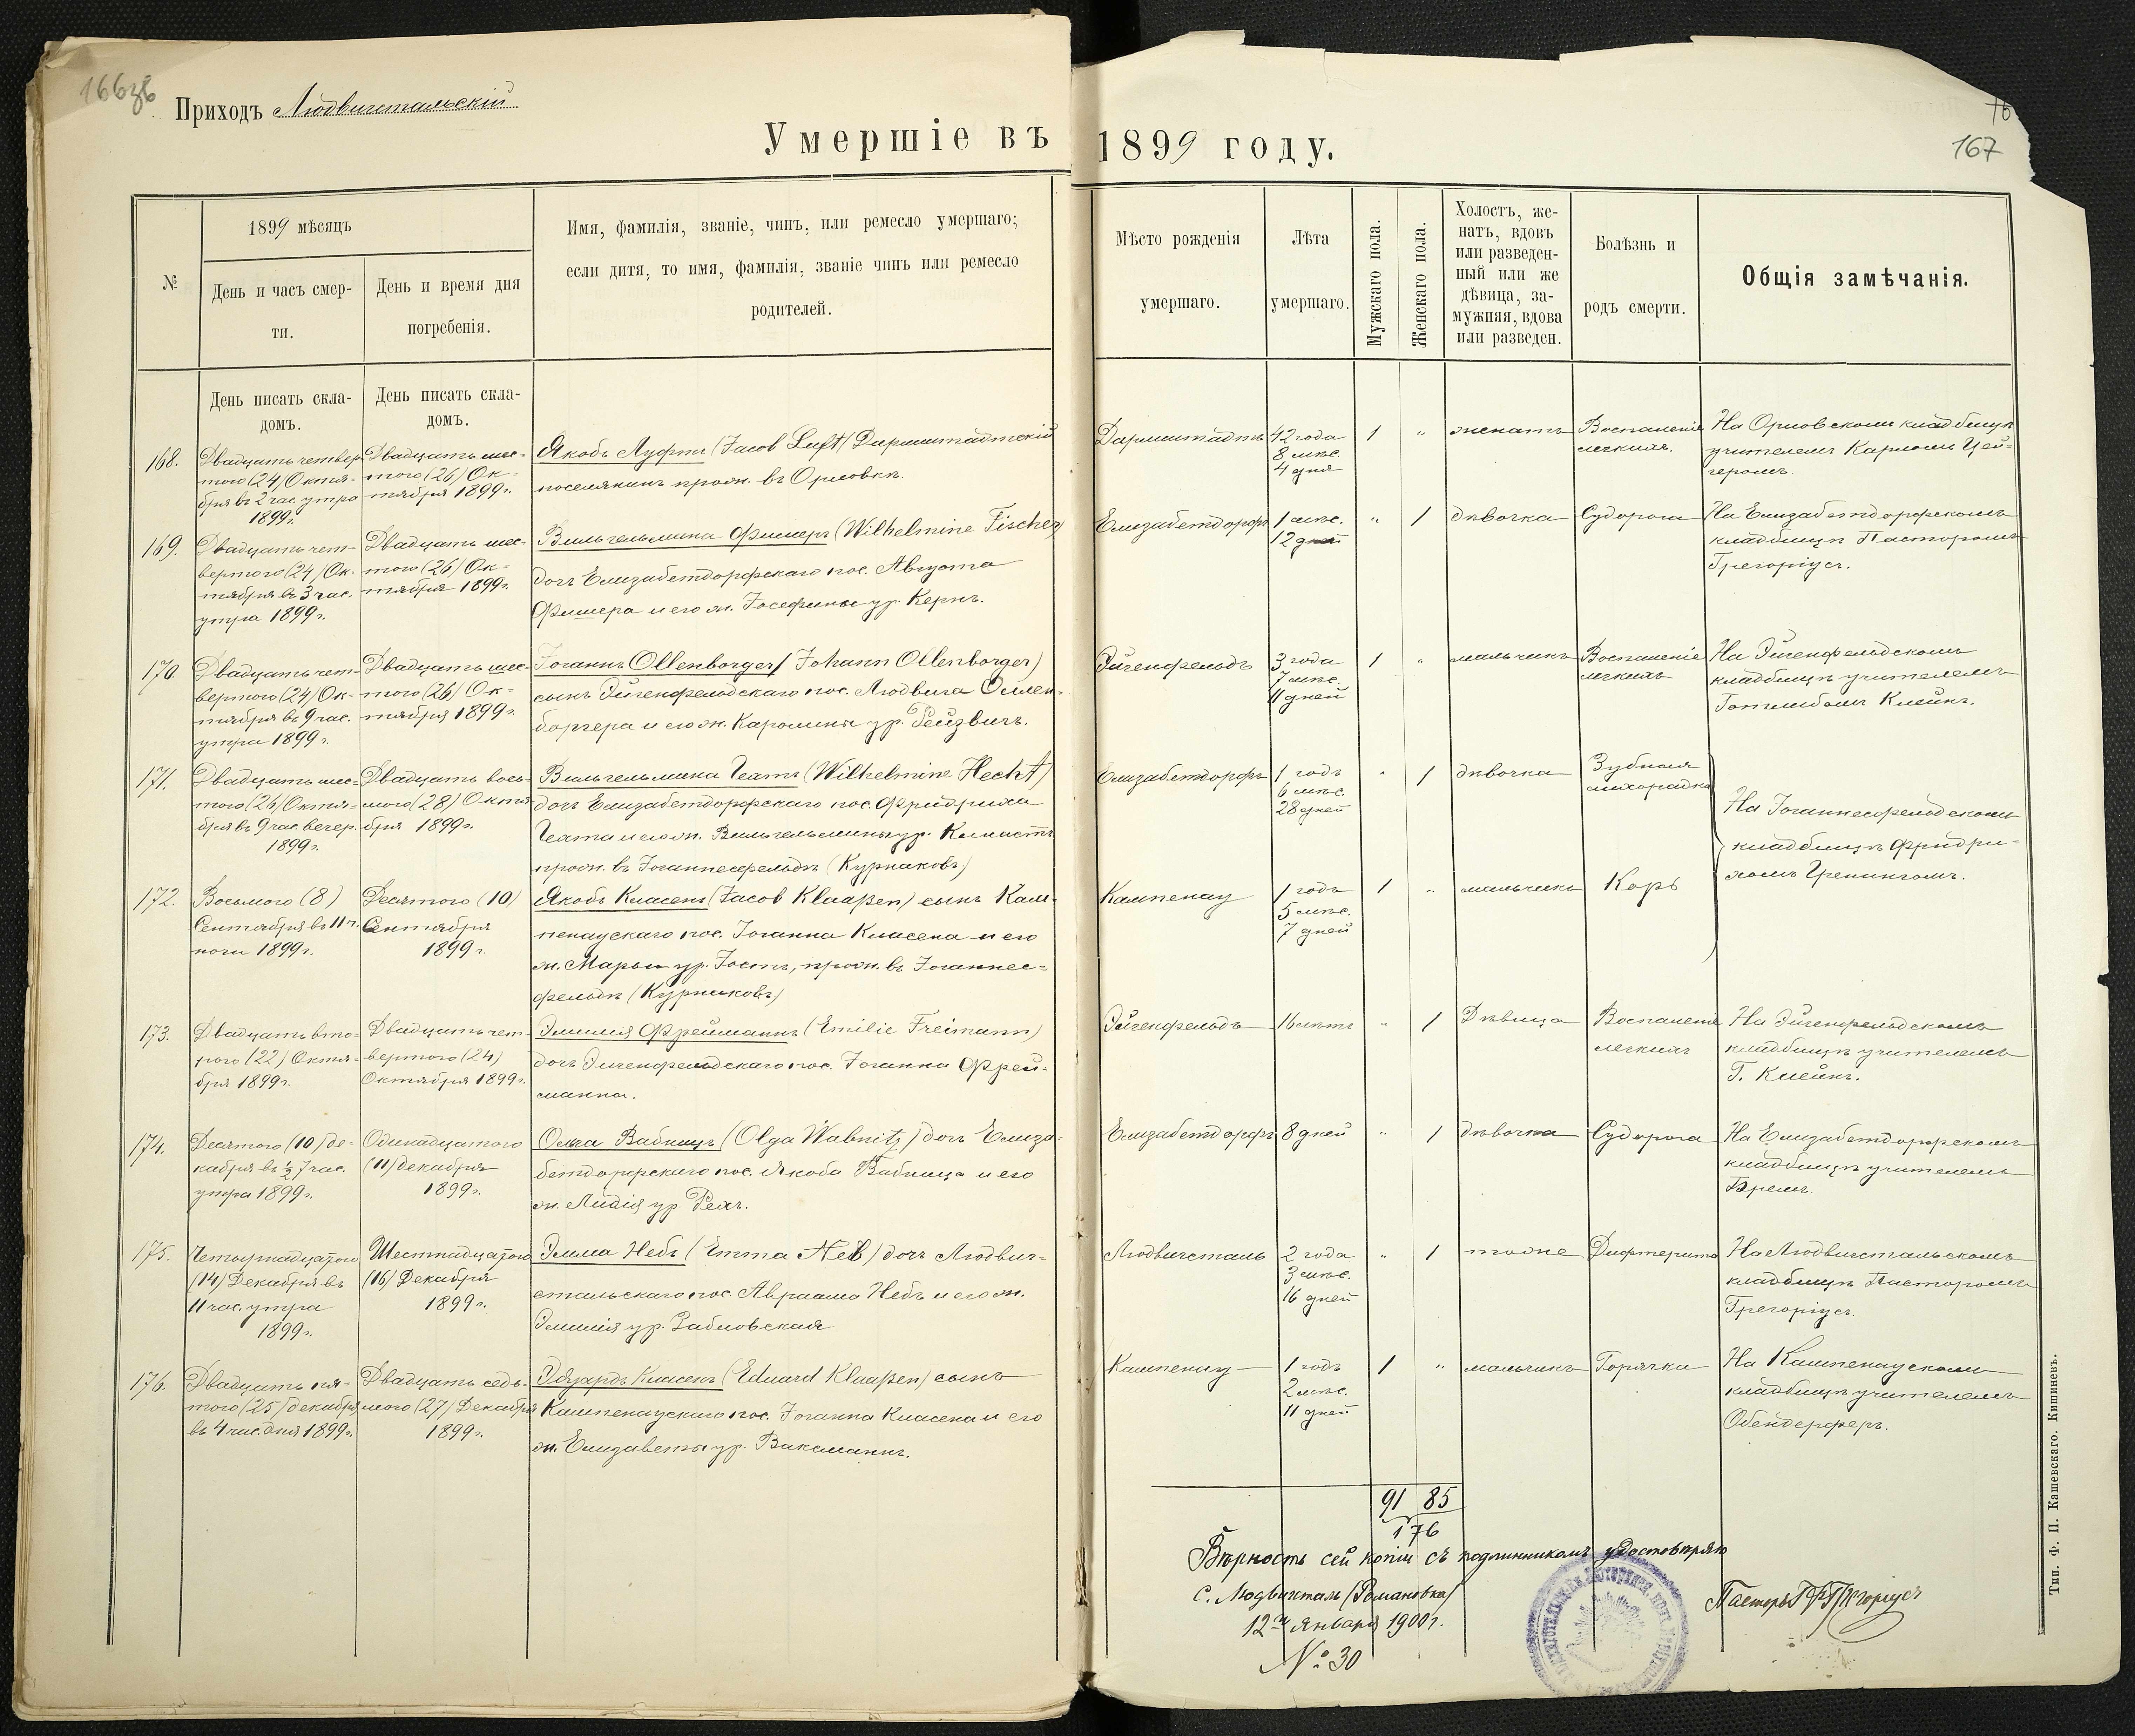 166об
Приходъ Людвигстальскій
Умершіе въ 1899 году.
167
№
1899 мѣсяцъ
День и часъ смер-
ти.
День и время дня
погребенія.
Имя, фамилія, званіе, чинъ, или ремесло умершаго;
если дитя, то имя, фамилія, званіе чинъ или ремесло
родителей.
Мѣсто рожденія
умершаго.
Лѣта
умершаго.
Мужскаго пола.
Женскаго пола.
Холостъ, же-
натъ, вдовъ
или разведен-
ный или же
дѣвица, за-
мужняя, вдова
или разведен.
Болѣзнь и
родъ смерти.
Общія замѣчанія.
День писать скла-
домъ.
День писать скла-
домъ.
168.
Двадцать четвер
того (24) Октя-
бря въ 2 час. утра
1899г.
Двадцать шес-
того (26) Ок-
тября 1899г.
Якобъ Луфтъ (Jacob Luft) Дармштадтскій
поселянинъ прож. въ Орловкѣ.
Дармштадтъ
42 года
8 мѣс.
4 дня
1
"
женатъ
Воспаленіе
легкихъ.
На Орловскомъ кладбищѣ
учителемъ Карломъ Цей-
геромъ.
169.
Двадцать чет-
вертого (24) Ок-
тября въ 3 час.
утра 1899г.
Двадцать шес-
того (26) Ок-
тября 1899г.
Вильгельмина Фишеръ (Wilhelmine Fischer)
дочь Елизабетдорфскаго пос. Августа
Фишера и его ж. Іосефины ур. Кернъ.
Елизабетдорфъ
1 мѣс.
12 дней
"
1
дѣвочка
Судорога
На Елизабетдорфскомъ
кладбищѣ Пасторомъ
Грегоріусъ.
170.
Двадцать чет-
вертого (24) Ок-
тября въ 9 час.
утра 1899г.
Двадцать шес-
того (26) Ок-
тября 1899г.
Іоганнъ Ollenborger (Johann Ollenborger)
сынъ Эйгенфельдскаго пос. Людвига Оллен-
боргера и его ж. Каролины ур. Рейзвигъ.
Эйгенфельдъ
3 года
7 мѣс.
11 дней
1
"
мальчикъ
Воспаленіе
легкихъ
На Эйгенфельдскомъ
кладбищѣ учителемъ
Готлибомъ Клейнъ.
171.
Двадцать шес-
того (26) Октя-
бря въ 9 час. вечер.
1899г.
Двадцать вось-
мого (28) Октя
бря 1899г.
Вильгельмина Гехтъ (Wilhelmine Hecht)
дочь Елизабетдорфскаго пос. Фридриха
Гехта и его ж. Вильгельмины ур.
прож. въ Іоганнесфельдѣ (Курниковъ)
Елизабетдорфъ
1 годъ
6 мѣс.
28 дней
"
1
дѣвочка
Зубная
лихорадка
На Іоганнесфельдскомъ
кладбищѣ Фридри-
хомъ Гренингомъ.
172.
Восьмого (8)
Сентября въ 11 ч.
ночи 1899г.
Десятого (10)
Сентября
1899г.
Якобъ Класенъ (Jacob Klaaßen) сынъ Кам-
пенаускаго пос. Іоганна Класена и его
ж. Марьи ур. Іостъ, прож. въ Іоганнес-
фельдѣ (Курниковъ)
Кампенау
1 годъ
5 мѣс.
7 дней
1
"
мальчикъ
Корь
173.
Двадцать вто-
рого (22) Октя-
бря 1899г.
Двадцать чет-
вертого (24)
Октября 1899г.
Эмилія Фрейманнъ (Emilie Freimann)
дочь Эйгенфельдскаго пос. Іоганна Фрей-
манна.
Эйгенфельдъ
16 лѣтъ
"
1
Дѣвица
Воспаленіе
легкихъ
На Эйгенфельдскомъ
кладбищѣ учителемъ
Г. Клейнъ.
174.
Десятого (10) де-
кабря въ ½ 7 час.
утра 1899г.
Одинадцатого
(11) декабря
1899г.
Ольга Вабницъ (Olga Wabnitz) дочь Елиза-
бетдорфскаго пос. Якоба Вабница и его
ж. Лидія ур. Рехъ.
Елизабетдорфъ
8 дней
"
1
дѣвочка
Судорога
На Елизабетдорфскомъ
кладбищѣ учителемъ
175.
Четырнадцатого
(14) Декабря въ
11 час. утра
1899г.
Шестнадцатого
(16) Декабря
1899г.
Эмма Небъ (Emma Neb) дочь Людвиг-
стальскаго пос. Авраама Небъ и его ж.
Эмилія ур. Забловская
Людвигсталь
2 года
3 мѣс.
16 дней
"
1
тоже
Дифтеритъ
На Людвигстальскомъ
кладбищѣ Пасторомъ
Грегоріусъ.
176.
Двадцать пя-
того (25) декабря
въ 4 час. дня 1899г.
Двадцать седь-
мого (27) Декабря
1899г.
Эдуардъ Класенъ (Eduard Klaaßen) сынъ
Кампенаускаго пос. Іоганна Класена и его
ж. Елизаветы ур. Ваксманнъ.
Кампенау
1 годъ
2 мѣс.
11 дней
1
"
мальчикъ
Горячка
На Кампенаускомъ
кладбищѣ учителемъ
Обендерферъ.
91 85
176
Вѣрность сей копіи съ подлинникомъ удостовѣряю
с. Людвигсталь (Романовка)
12го Января 1900г.
№ 30
Пасторъ Грегоріусъ
Тип. Ф. П. Кашевскаго. Кишиневъ.